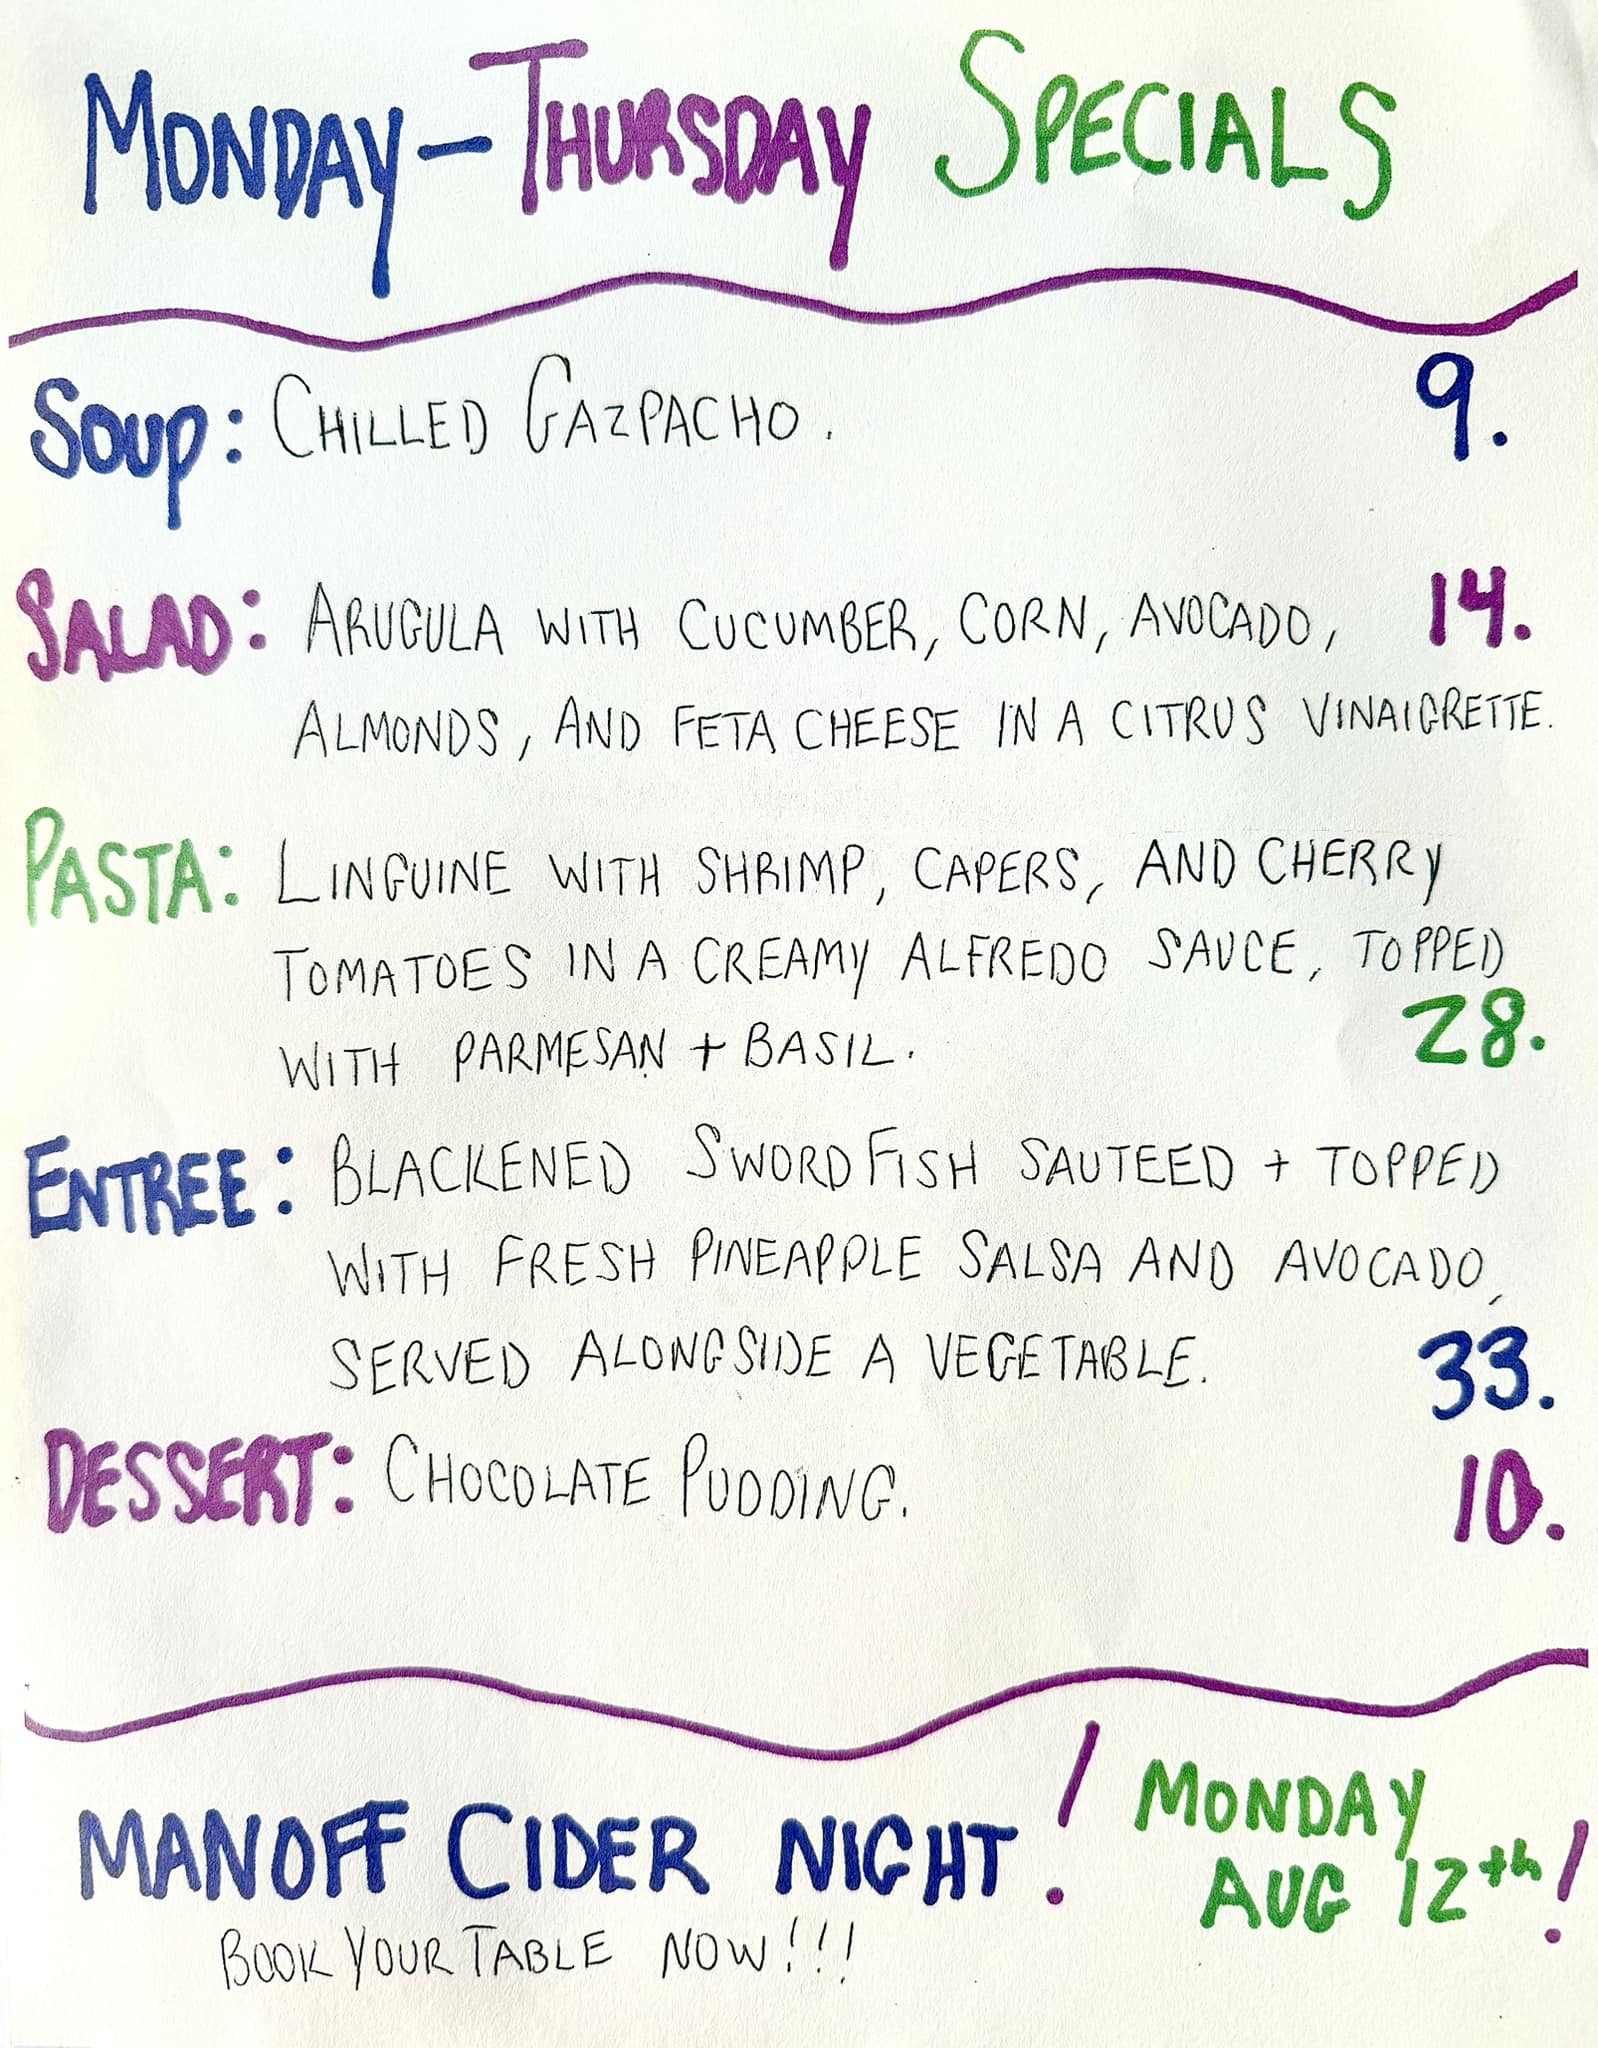 MONDAY-THURSDAY SPECIALS
SOUP: CHILLED GAZPACHO. 9.
SALAD: ARUGULA WITH CUCUMBER, CORN, AVOCADO, 14.
ALMONDS, AND FETA CHEESE IN A CITRUS VINAIGRETTE.
PASTA: LINGUINE WITH SHRIMP, CAPERS, AND CHERRY
TOMATOES IN A CREAMY ALFREDO SAUCE, TOPPED
WITH PARMESAN + BASIL. 28.
ENTREE: BLACKENED SWORDFISH SAUTEED + TOPPED
WITH FRESH PINEAPPLE SALSA AND AVOCADO,
SERVED ALONGSIDE A VEGETABLE. 33.
DESSERT: CHOCOLATE PUDDING. 10.
MANOFF CIDER NIGHT!
BOOK YOUR TABLE NOW!!!
MONDAY
AUG 12th!